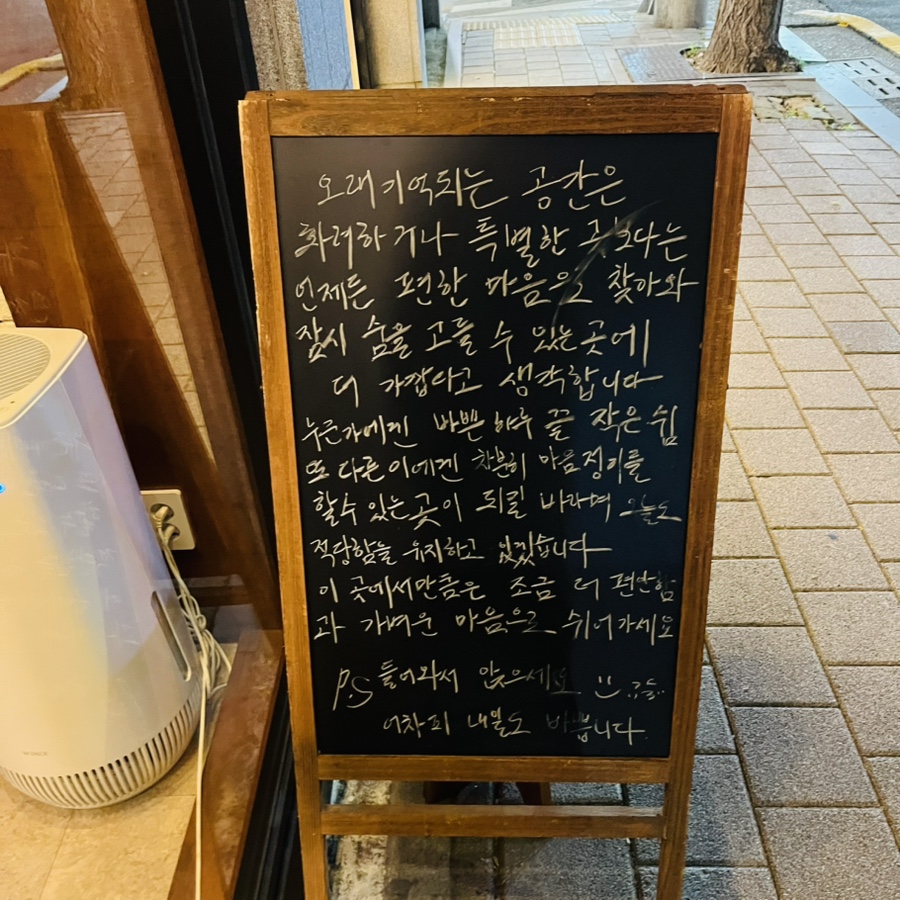 오래 기억되는 공간은
화려하거나 특별한 곳보다는
언제든 편한 마음으로 찾아와
잠시 숨을 고를 수 있는 곳에
더 가깝다고 생각합니다
누군가에겐 바쁜 하루 끝 작은 쉼
또 다른 이에겐 차분히 마음정리를
할 수 있는 곳이 되길 바라며 오늘도
적당함을 유지하고 있겠습니다
이 곳에서만큼은 조금 더 편안함
과 가벼운 마음으로 쉬어가세요
P.S 들어와서 앉으세요 :)
어차피 내일도 바쁩니다.